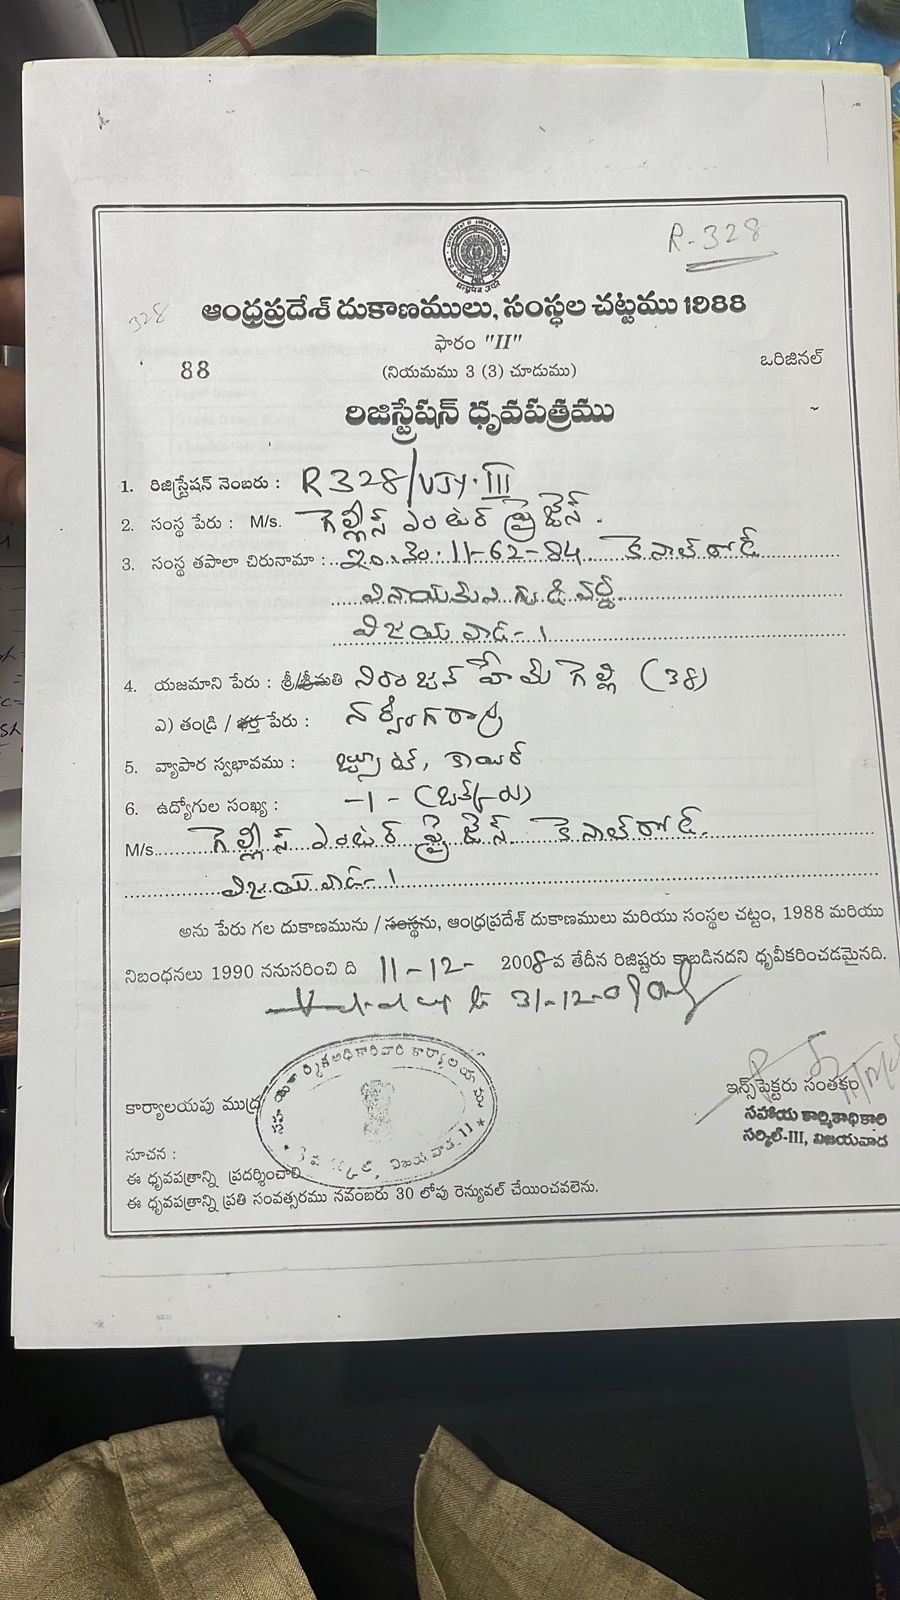 R-328
328
ఆంధ్రప్రదేశ్ దుకాణములు, సంస్థల చట్టము 1988
ఫారం "II"
88
(నియమము 3 (3) చూడుము)
ఒరిజినల్
రిజిస్ట్రేషన్ ధృవపత్రము
1. రిజిస్ట్రేషన్ నెంబరు : R328/VJY.III
2. సంస్థ పేరు : M/s. గెల్లీస్ ఎంటర్ ప్రైజెస్.
3. సంస్థ తపాలా చిరునామా : ఇ.నెం. 11-62-84 కెనాల్ రోడ్
వినాయకుని గుడి వద్ద
విజయవాడ-1
4. యజమాని పేరు : శ్రీ/శ్రీమతి నిరంజన్ హేమ్ గెల్లి (38)
ఎ) తండ్రి / భర్త పేరు : నర్శింగరావు
5. వ్యాపార స్వభావము : జ్యూట్, కాయర్
6. ఉద్యోగుల సంఖ్య : -1- (ఒక్కరు)
M/s. గెల్లీస్ ఎంటర్ ప్రైజెస్ కెనాల్ రోడ్.
విజయవాడ-1
అను పేరు గల దుకాణమును / సంస్థను, ఆంధ్రప్రదేశ్ దుకాణములు మరియు సంస్థల చట్టం, 1988 మరియు
నిబంధనలు 1990 ననుసరించి ది 11-12- 2008వ తేదీన రిజిష్టరు కాబడినదని ధృవీకరించడమైనది.
Valid up to 31-12-09 only
కార్యాలయపు ముద్ర
సహాయ కార్మిక అధికారివారి కార్యాలయము
విజయవాడ-11
ఇన్స్‌పెక్టరు సంతకం
సహాయ కార్మికాధికారి
సర్కిల్-III, విజయవాడ
సూచన :
ఈ ధృవపత్రాన్ని ప్రదర్శించాలి
ఈ ధృవపత్రాన్ని ప్రతి సంవత్సరము నవంబరు 30 లోపు రెన్యువల్ చేయించవలెను.